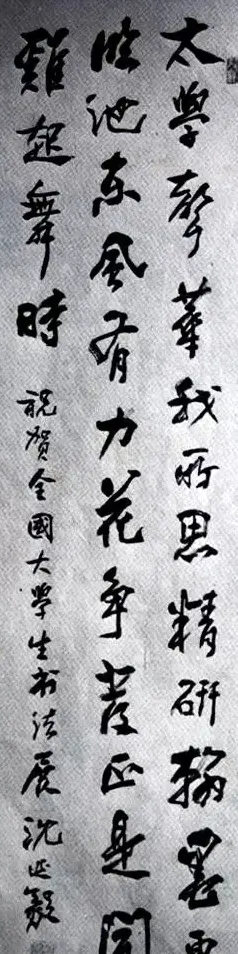 太學聲華我所思精研翰墨
臨池東風有力花爭發正是聞
雞起舞時
祝賀全國大學生书法展 沈延毅